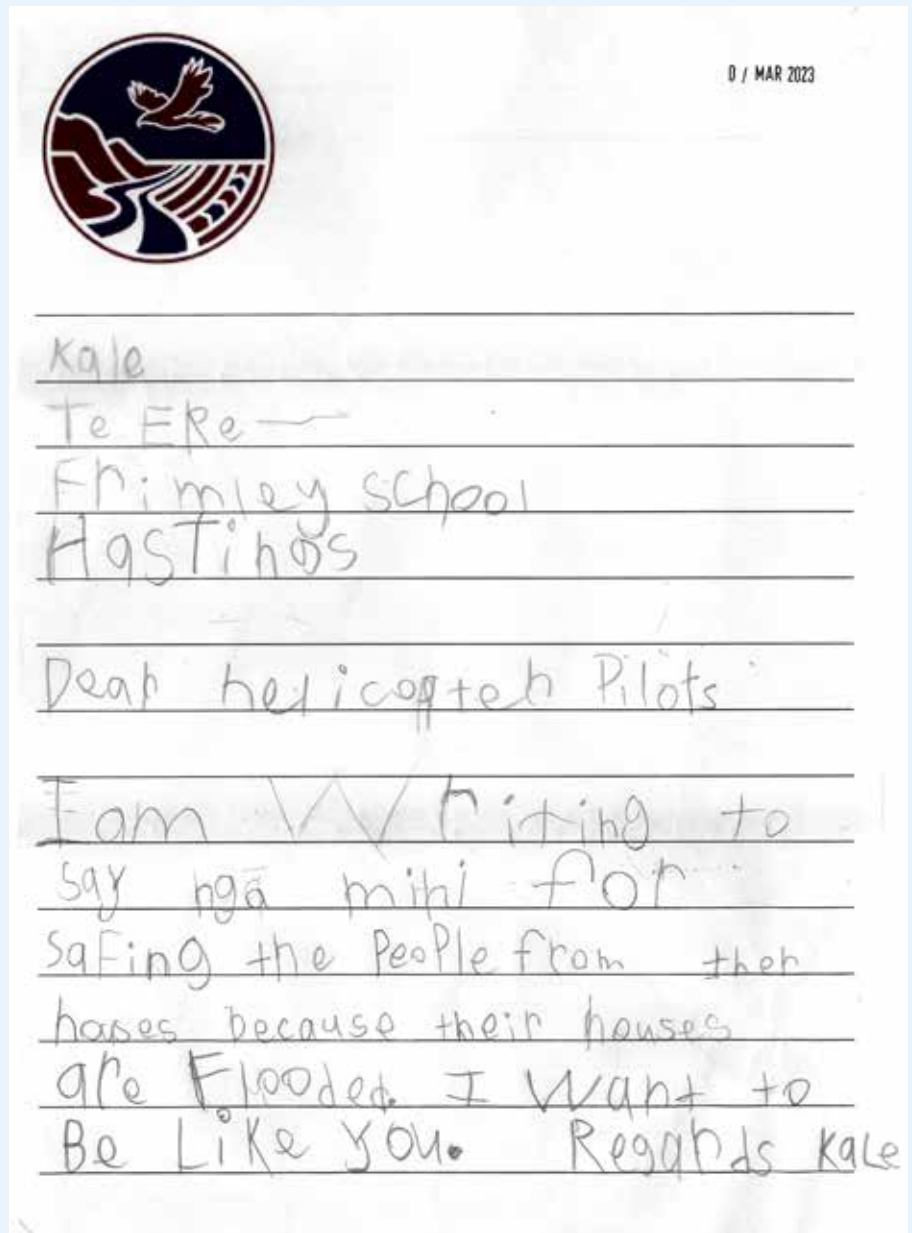 0 / MAR 2023
Kale
Te ERe
Frimley school
Hastings
Dear helicopter Pilots
I am Writing to
say ngā mihi for
saFing the PeoPle from ther
hoses because their houses
are Flooded. I want to
Be Like you. Regards Kale